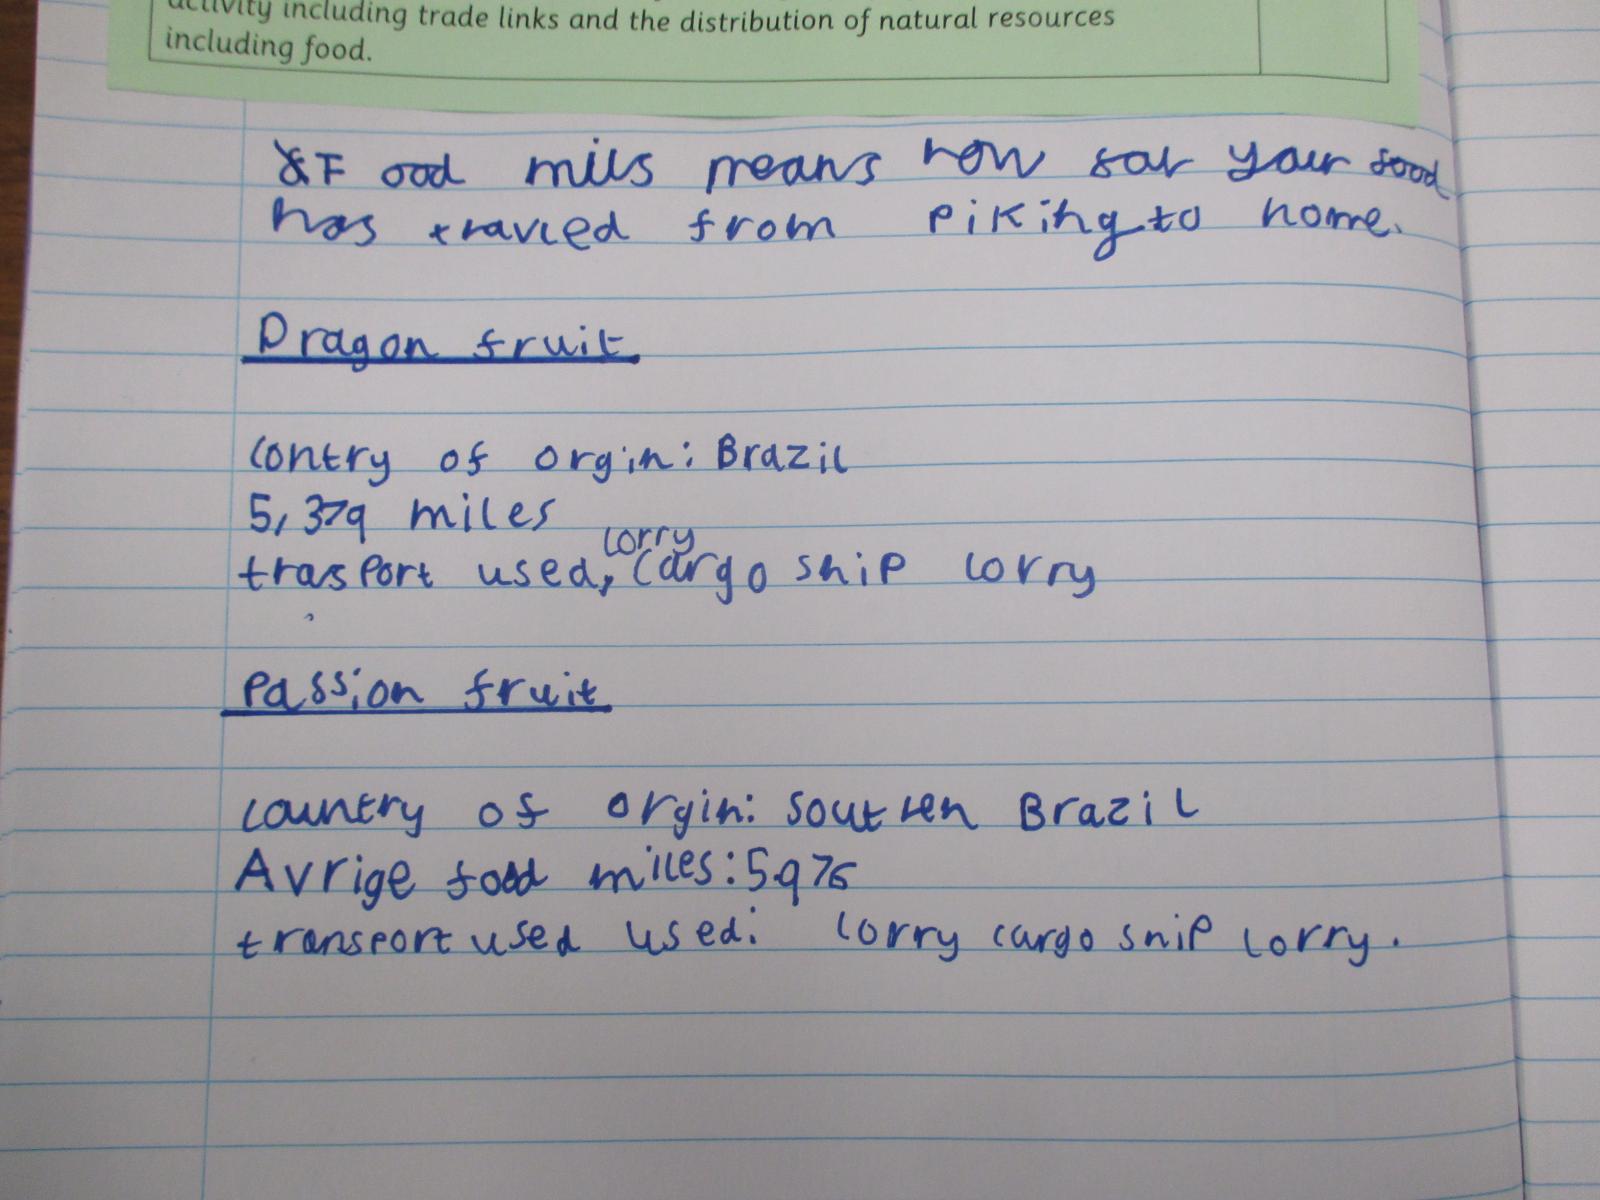 activity including trade links and the distribution of natural resources
including food.
Food mils means how far your food
has travled from piking to home.
Dragon fruit
Contry of orgin: Brazil
5,379 miles
trasport used, lorry cargo ship lorry
Passion fruit
Country of orgin: Southen Brazil
Avrige food miles: 5976
transport used used: lorry cargo ship lorry.